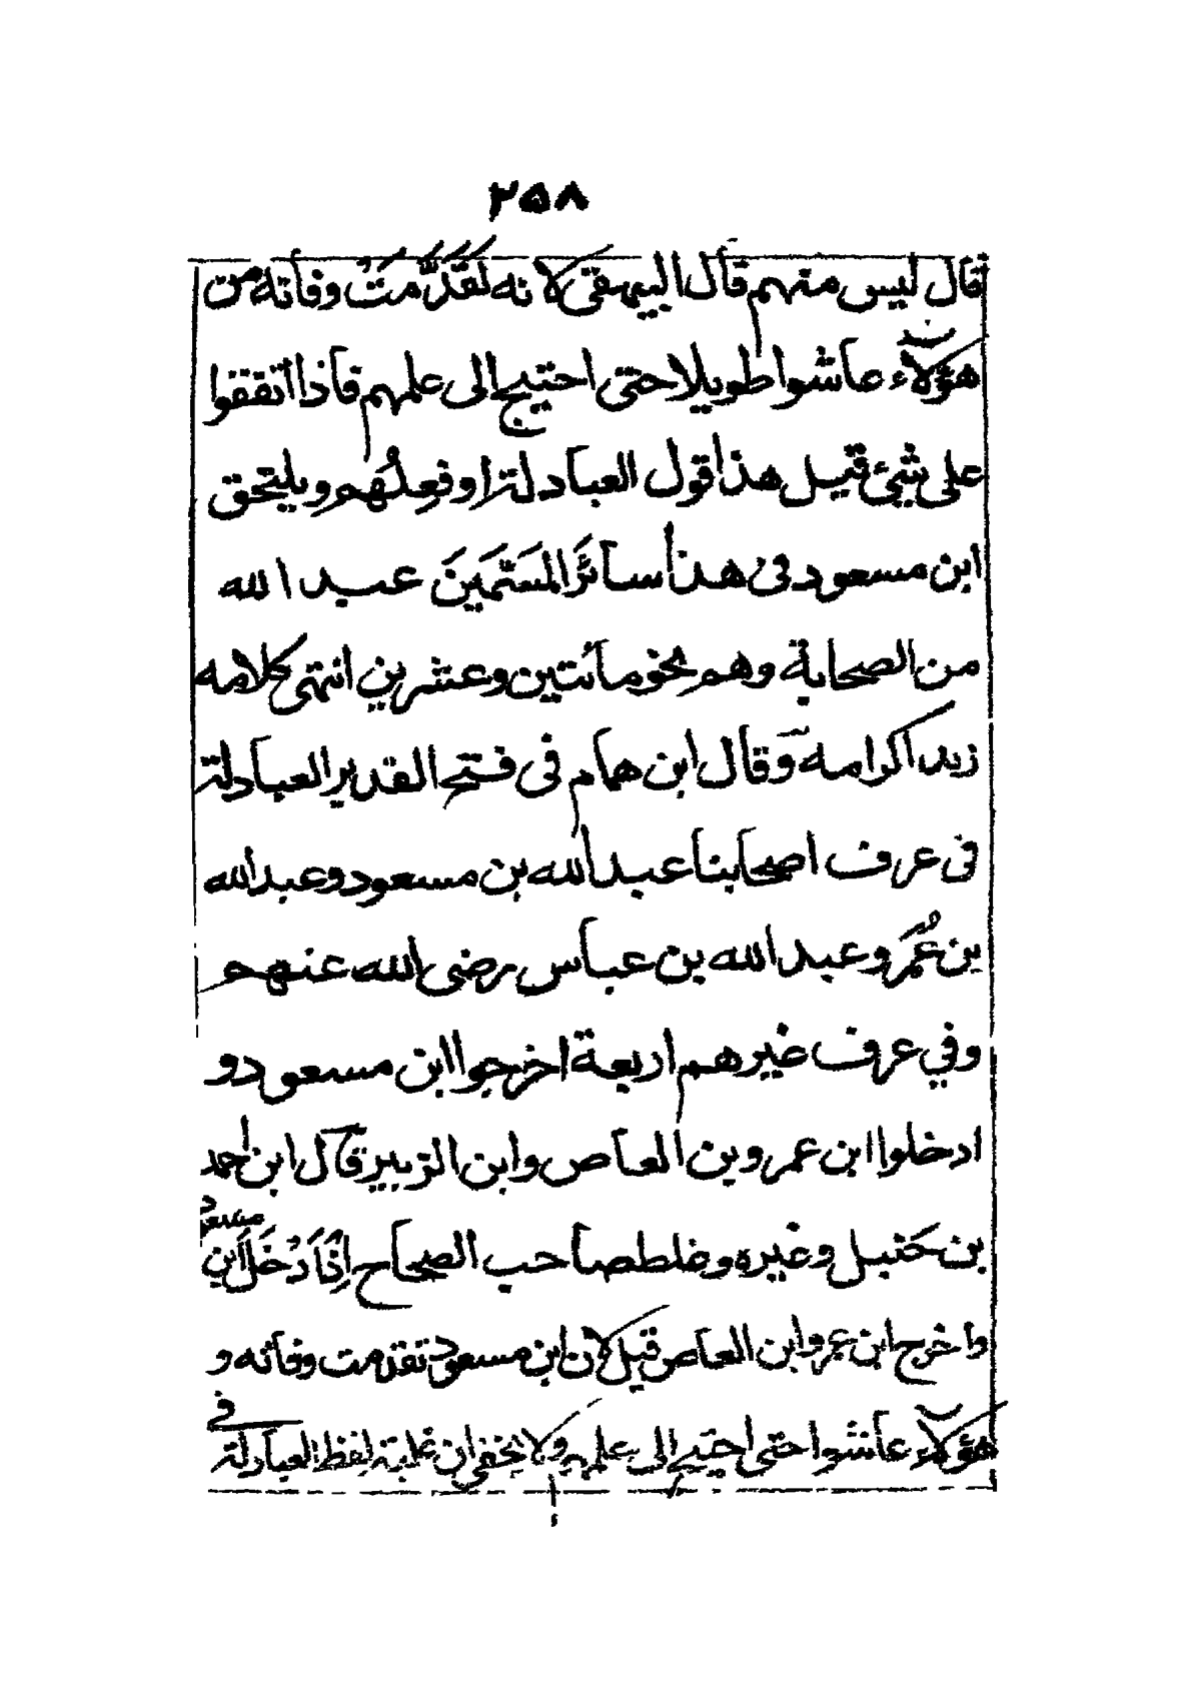 ٢٥٨
قال ليس منهم قال البيهقى لانه تقدمت وفاته من
هؤلاء عاشوا طويلا حتى احتيج الى علمهم فاذا اتفقوا
على شئ قيل هذا قول العبادلة او فعلهم ويلتحق
ابن مسعود فى هذا سائر المسمين عبد الله
من الصحابة وهم نحو مائتين وعشرين انتهى كلامه
زيد اكرامه وقال ابن همام فى فتح القدير العبادلة
فى عرف اصحابنا عبد الله بن مسعود وعبد الله
بن عمر وعبد الله بن عباس رضى الله عنهم
وفي عرف غيرهم اربعة اخرجوا ابن مسعود و
ادخلوا ابن عمرو بن العاص وابن الزبير قال ابن احمد
بن حنبل وغيره وغلط صاحب الصحاح اذا دخل ابن مسعود
واخرج ابن عمرو ابن العاص قيل لان ابن مسعود تقدمت وفاته و
هؤلاء عاشوا حتى احتيج الى علمهم ولا يخفى ان غلبة لفظ العبادلة فى